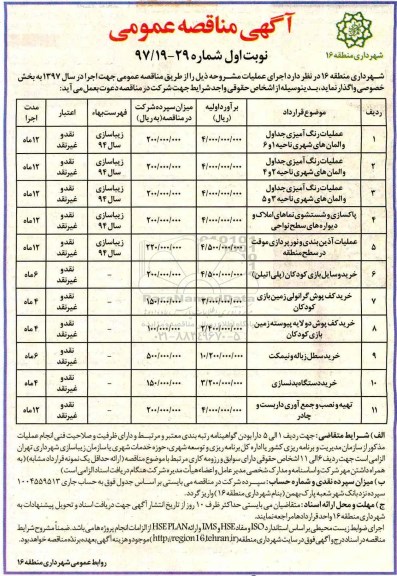 آگهی مناقصه عمومی
نوبت اول شماره ۲۹-۹۷/۱۹
شهرداری منطقه ۱۶
شهرداری منطقه ۱۶ در نظر دارد اجرای عملیات مشروحه ذیل را از طریق مناقصه عمومی جهت اجرا در سال ۱۳۹۷ به بخش
خصوصی واگذار نماید، بدینوسیله از اشخاص حقوقی واجد شرایط جهت شرکت در مناقصه دعوت بعمل می آید:
ردیف موضوع قرارداد برآورد اولیه (ریال) میزان سپرده شرکت در مناقصه (به ریال) فهرست بهاء اعتبار مدت اجرا
۱ عملیات رنگ آمیزی جداول والمان های شهری ناحیه ۱ و ۶ ۴/۰۰۰/۰۰۰/۰۰۰ ۲۰۰/۰۰۰/۰۰۰ زیباسازی سال ۹۴ نقد و غیرنقد ۱۲ماه
۲ عملیات رنگ آمیزی جداول والمان های شهری ناحیه ۲ و ۴ ۴/۰۰۰/۰۰۰/۰۰۰ ۲۰۰/۰۰۰/۰۰۰ زیباسازی سال ۹۴ نقد و غیرنقد ۱۲ماه
۳ عملیات رنگ آمیزی جداول والمان های شهری ناحیه ۳ و ۵ ۴/۰۰۰/۰۰۰/۰۰۰ ۲۰۰/۰۰۰/۰۰۰ زیباسازی سال ۹۴ نقد و غیرنقد ۱۲ماه
۴ پاکسازی و شستشوی نماهای املاک و دیواره های سطح نواحی ۴/۰۰۰/۰۰۰/۰۰۰ ۲۰۰/۰۰۰/۰۰۰ زیباسازی سال ۹۴ نقد و غیرنقد ۱۲ماه
۵ عملیات آذین بندی و نورپردازی موقت در سطح منطقه ۴/۵۰۰/۰۰۰/۰۰۰ ۲۲۰/۰۰۰/۰۰۰ زیباسازی سال ۹۴ نقد و غیرنقد ۱۲ماه
۶ خرید وسایل بازی کودکان (پلی اتیلن) ۴/۵۰۰/۰۰۰/۰۰۰ ۲۰۰/۰۰۰/۰۰۰ - نقد و غیرنقد ۶ماه
۷ خرید کف پوش گرانولی زمین بازی کودکان ۱۵۰/۰۰۰/۰۰۰ - نقد و غیرنقد ۴ماه
۸ خرید کف پوش دولایه پیوسته زمین بازی کودکان ۱۰۰/۰۰۰/۰۰۰ - نقد و غیرنقد ۴ماه
۹ خرید سطل زباله و نیمکت ۱۰/۲۰۰/۰۰۰/۰۰۰ ۵۰۰/۰۰۰/۰۰۰ - نقد و غیرنقد ۶ماه
۱۰ خرید دستگاه بدنسازی ۳/۲۰۰/۰۰۰/۰۰۰ ۱۵۰/۰۰۰/۰۰۰ - نقد و غیرنقد ۴ماه
۱۱ تهیه و نصب و جمع آوری داربست و چادر ۴/۰۰۰/۰۰۰/۰۰۰ ۲۰۰/۰۰۰/۰۰۰ - نقد و غیرنقد ۱۲ماه
الف) شرایط متقاضی: جهت ردیف ۱ الی ۵ دارا بودن گواهینامه رتبه بندی معتبر و مرتبط و دارای ظرفیت و صلاحیت فنی انجام عملیات
مذکور از سازمان مدیریت و برنامه ریزی کشور یا اداره کل برنامه ریزی و توسعه شهری، حوزه خدمات شهری یا سازمان زیباسازی شهرداری تهران
الزامی است جهت ردیف ۶ الی ۱۱ اشخاص حقوقی دارای سوابق و رزومه کاری مرتبط با موضوع مناقصه (ارائه حداقل یک نمونه قرارداد مشابه) به
همراه داشتن مهر شرکت و اساسنامه و مدارک شخصی مدیرعامل و اعضاء هیأت مدیره شرکت هنگام دریافت اسناد الزامی است)
ب) میزان سپرده نقدی و شماره حساب: سپرده شرکت در مناقصه می بایستی بر اساس جدول فوق به حساب جاری ۱۰۰۴۵۵۹۵۱۳
سپرده نزد بانک شهر شعبه پارک بهمن (بنام شهرداری منطقه ۱۶) واریز گردد.
ج) مهلت و محل ارائه اسناد: متقاضیان می بایستی حداکثر ظرف ۱۰ روز از تاریخ انتشار آگهی جهت دریافت اسناد و تحویل پیشنهادات به
شهرداری منطقه ۱۶ واحد قراردادها مراجعه نمایند.
اجرای ضوابط زیست محیطی بر اساس استاندارد ISO و مفاد HSE و IMS و ارائه HSE PLAN از الزامات انجام پروژه ها می باشد. ضمناً مشروح شرایط
مناقصه در اسناد درج و آگهی فوق در سایت شهرداری منطقه ۱۶ (http://region16.tehran.ir) موجود و هزینه آگهی بعهده برنده مناقصه خواهد بود.
روابط عمومی شهرداری منطقه ۱۶